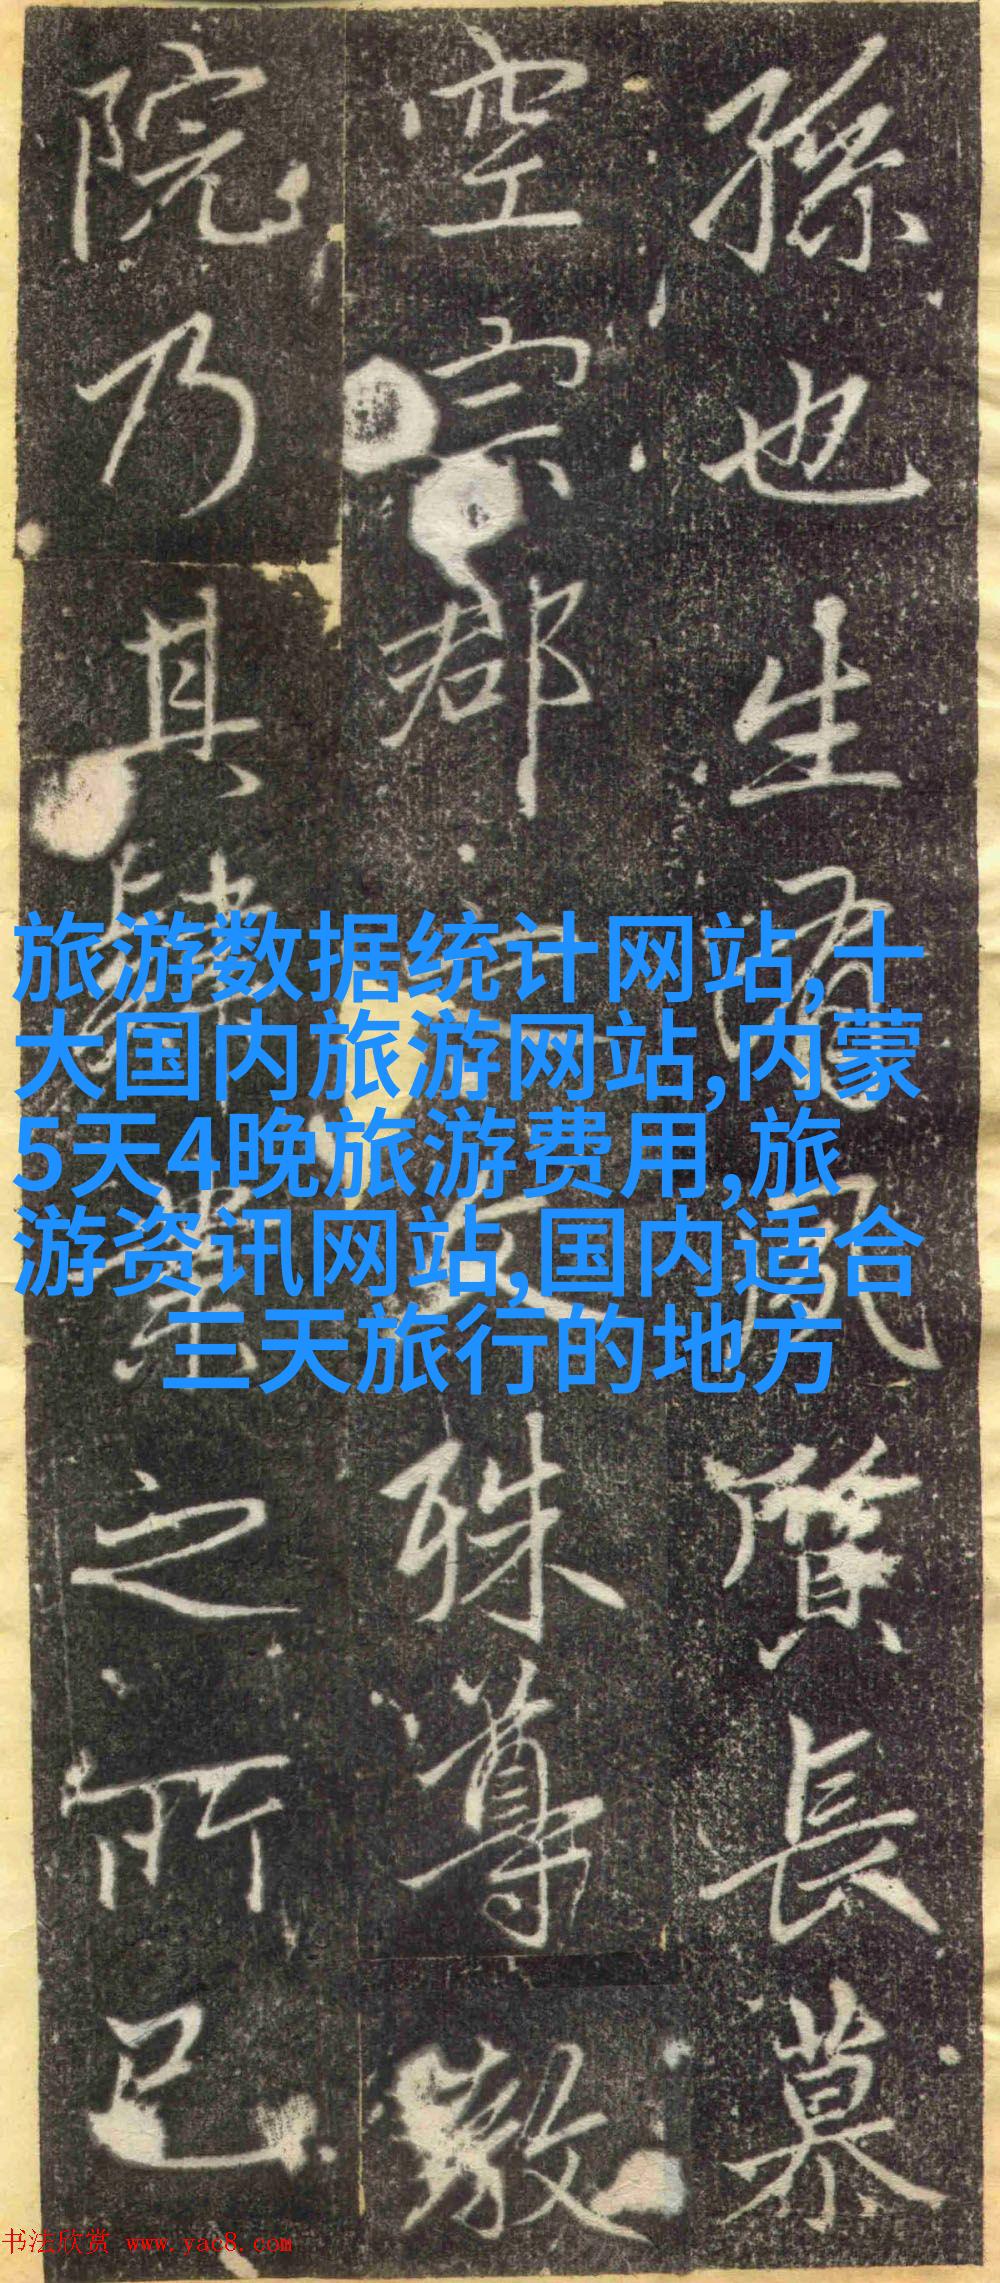 孫也生風質長慕
空宗郡文殊尊
院乃其之所已
旅游数据统计网站,十
大国内旅游网站,内蒙
5天4晚旅游费用,旅
游资讯网站,国内适合
三天旅行的地方
书法欣赏 www.yac8.com